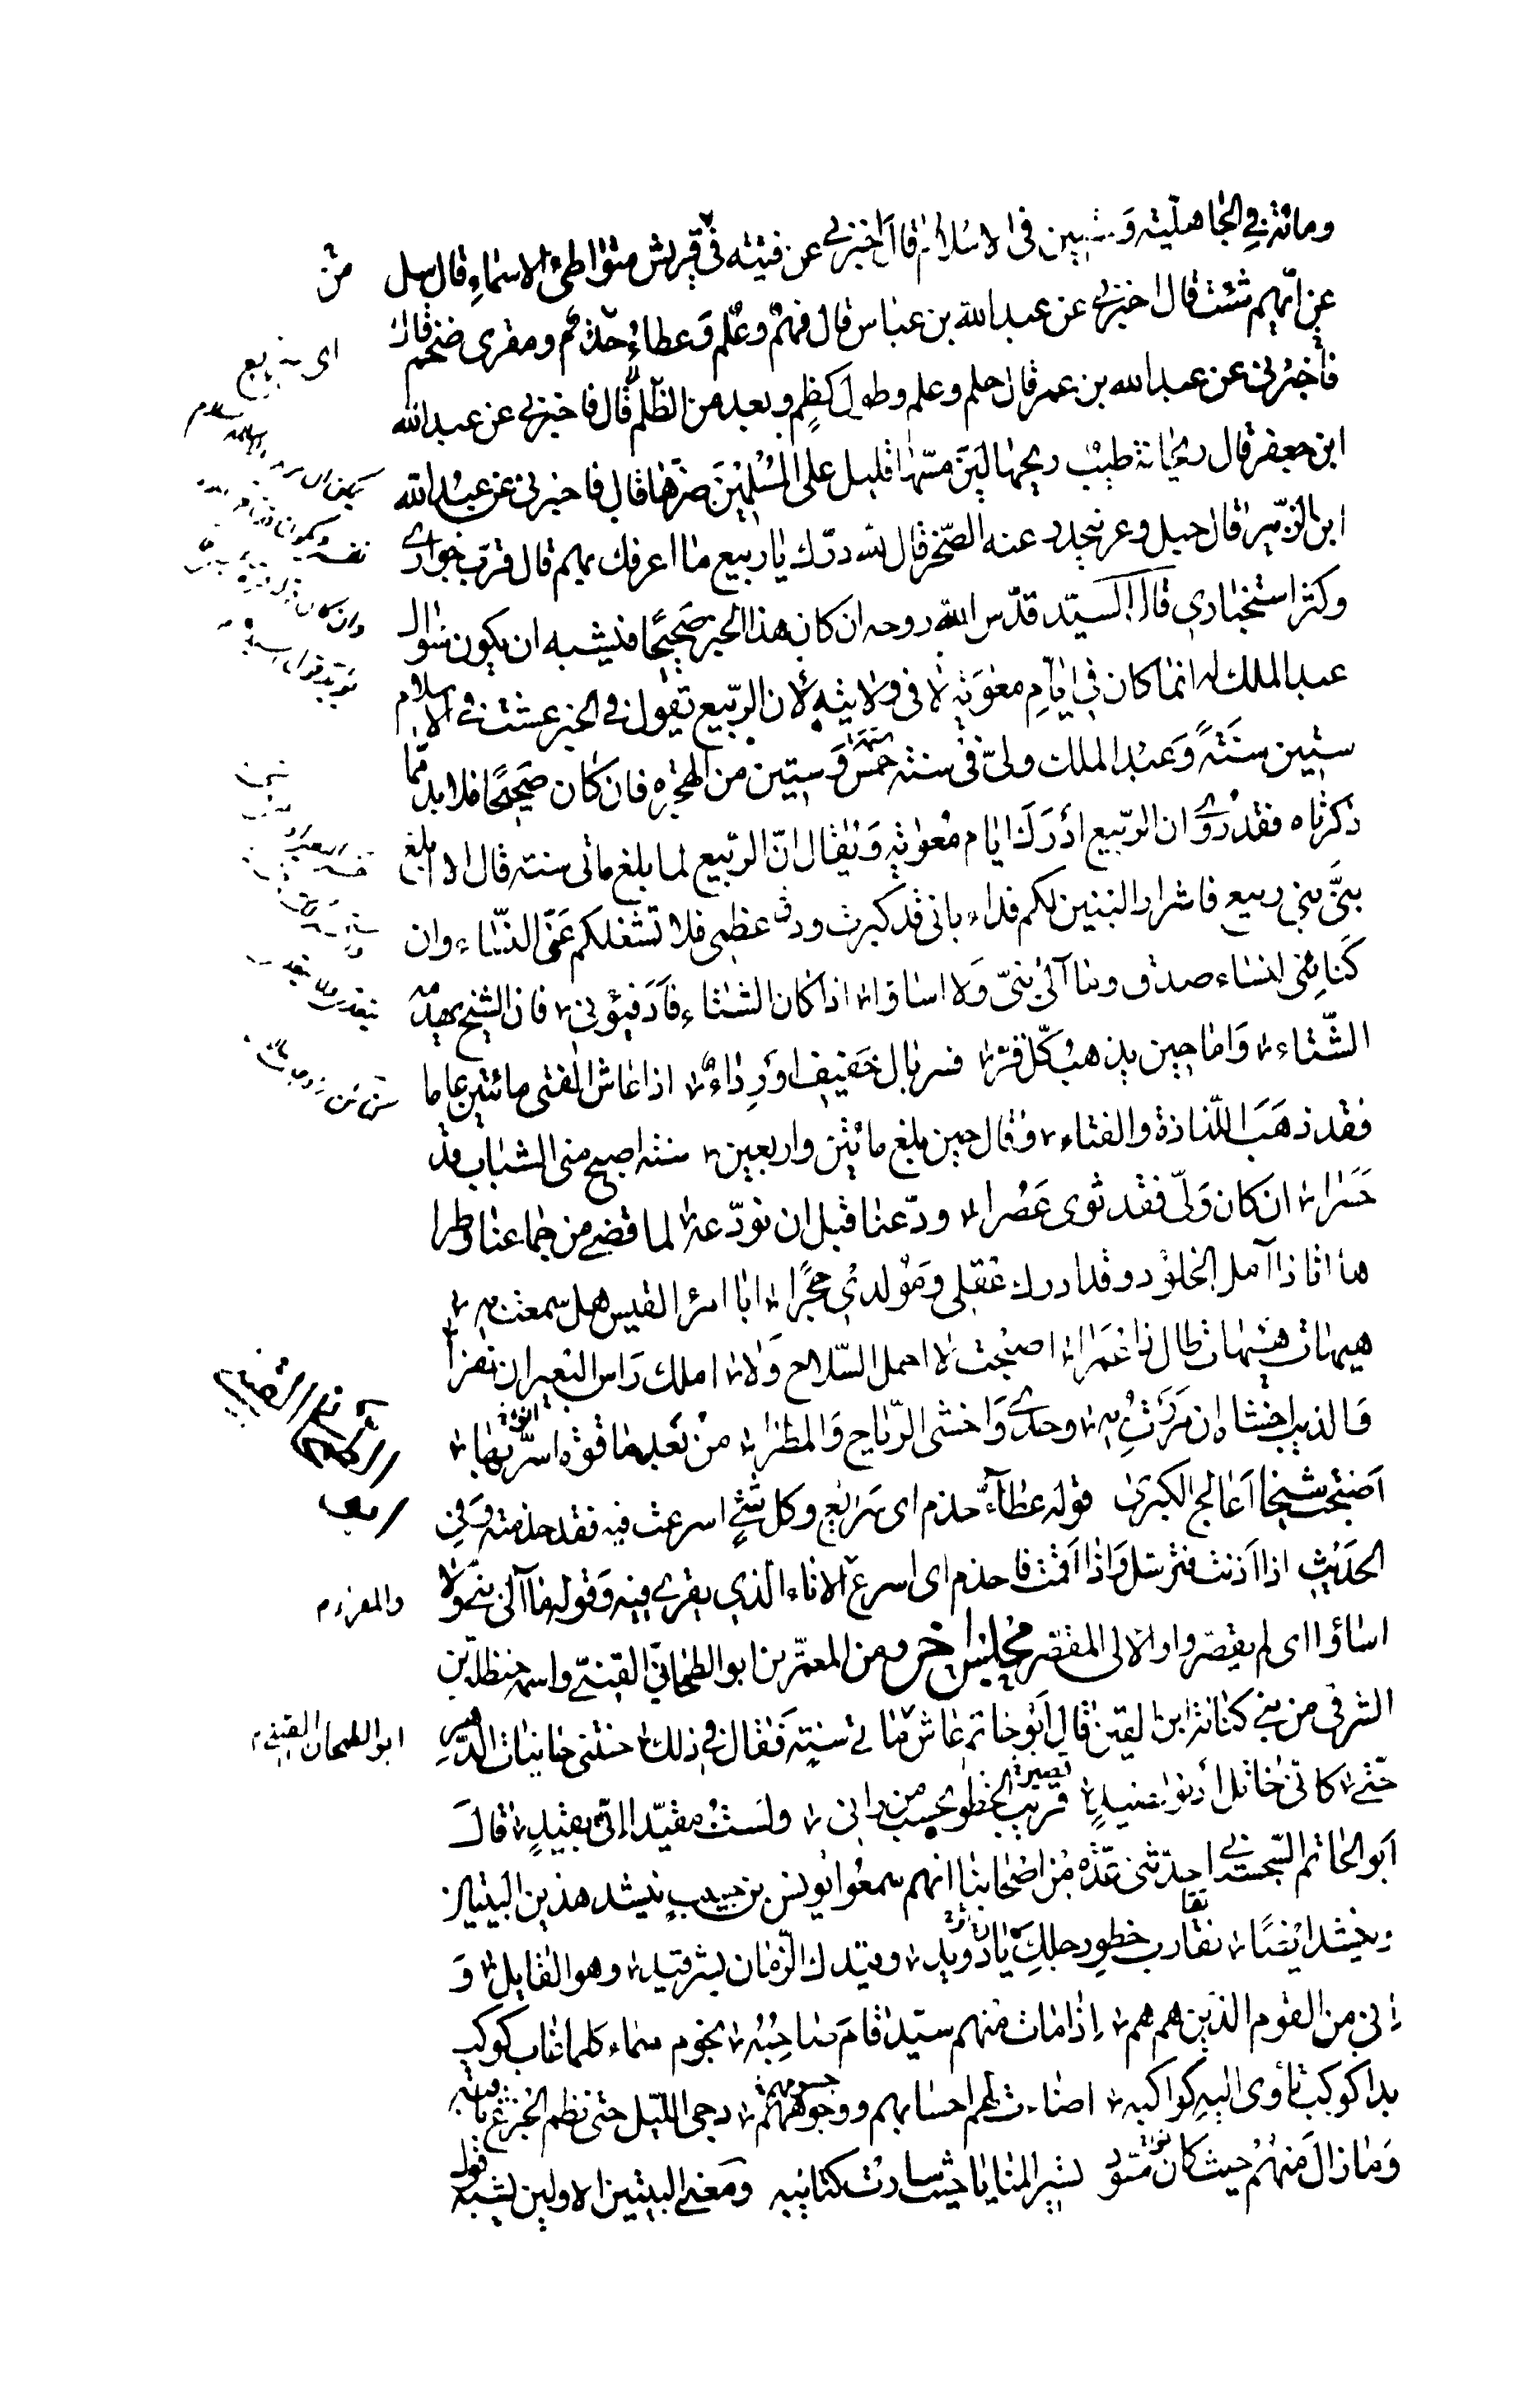 ومائة في الجاهليّة وَستين فى الاسلام قال اَخبرني عن فتية فى قريش متواطئ الاسماءِ قال سل
عن ايّهم شئت قال اخبرني عن عبد الله بن عباس قال فهمٌ وعُلم وَعطاءٌ حذم ومقرى ضخم قال
فأخبرنى عن عبد الله بن عمر قال حلم وعلم وطول كظمٍ وبعد من الظّلم قال فاخبرني عن عبد الله
ابن جعفر قال ريحانة طيبٌ ريحها ليّن مسّها قليل على المسُلمين ضرّها قال فاخبرنى عن عبد الله
ابن الزّبير قال جبل وعر ينحدر عنه الصّخر قال لله درّك يا ربيع ما اعرفك بهم قال قرب جوارى
وكثر استخبارى قال السيّد قدّس اللهُ روحه ان كان هذا الخبر صَحيحًا فيشبه ان يكون سُوال
عبد الملك له انما كان في ايّامِ معوَية لا فى ولايته لأن الرّبيع يقول فى الخبر عشت فى الاسلام
ستين سنَةً وَعبد الملك ولىّ فى سنة خمس وَستين من الهجرهِ فان كان صَحيحًا فلا بد ممّا
ذكرناه فقد رُوى ان الرّبيع ادْرَكَ ايّام معُوية وَيُقال انّ الرّبيع لما بلغ مائتى سنة قال الا ابلغ
بنىَّ بنى ربيع فاشرار البنين لكم فداء بانى قد كبرت ودق عظمى فلا تشغلكم عَنّى النّساء وان
كَنائِنى لنساء صدق وما آلىٰ بنىّ وَلا اساؤا اذا كان الشتاء فاَدَفِئوُنى فان الشيخ يهدمه
الشّتاء وَاما حين يذهبُ كلّ قرّ فسربال خَفيف اوْرِداءُ اذا عاش الفتى مائتين عاما
فقد ذهَبَ اللّذاذة والفتاء وَقال حين بلغ مائتين واربعين سنة اصبح منى الشباب قد
حَسَرا ان كان وَلّى فقد ثوى عَصُرا ودّعنا قبل ان نودّعه لما قضى من جماعنا وطرا
ها انا ذا آمل الخلوْد وقد ادرك عَقلى وَموُلدىْ حجُرًا ابا امرَا القيس هل سمعت به
هيهات هيْهات طال ذا عُمَرا اصبْحت لا احمل السّلاح وَلا املك رَاس البَعير ان نفرا
وَالذئب اخشاه ان مَرَرْتُ به وحدى وَاخشى الرّياح وَالمطرا منْ بَعد ما قوّة اسرّ بها
اَصْبَحْت شيخا اَعالج الكبرىٰ قوله عطآءٌ حذم اى سَرَيع وكل شئ اسرعت فيه فقد حذمته وَفى
الحَديث اذا اَذنت فترسّل وَاذا اَقمت فاحذم اى اسرع الاناء الّذى يقرى فيه وَقوله ما آلى بنىّ وَلا
اساؤا اى لم يقصّروا والالى المقصّر مجلس اخر ومن المعمّرين ابو الطّحان القينىّ واسمه حنظلة بن
الشرقى من بني كنانة ابن القين قال اَبُو حاتم عاش مَائتى سنةٍ فَقال فى ذلك حنتنى حانيات الدّهر
حَتّى كانّى خاتل ادنوا لصَيدٍ قريب الخطو يحسب من رانى ولَسْتُ مقيّدا انّى بقيْدٍ قال
اَبو الحاتم السّجستانى حدّثنى عدّه مِن اصْحابنا انهم سمعُوا يونس بن حبيب ينشد هذين البيتين
وينشد ايْضًا تقارب خطو رجلكَ يا دوَيد وقيّدك الزّمان بشرّ قيد وهو القايل وَ
اِنى من القوم الذّين هم هم اِذا مات منهم سيّد قامَ صاحِبُه نجوم سماء كلما غاب كوكب
بدا كوكب تأوى اليه كواكبه اضاءت لهم احسابهم ووجوههم دجى اللّيل حتى نظم الجزع ثاقبه
وَما زالَ منهُمْ حيث كان مسّود تسير المنايا حَيث سارتْ كتائبه وَمعنى البيتين الاولين يشبه قول
ابو الطحان القينى